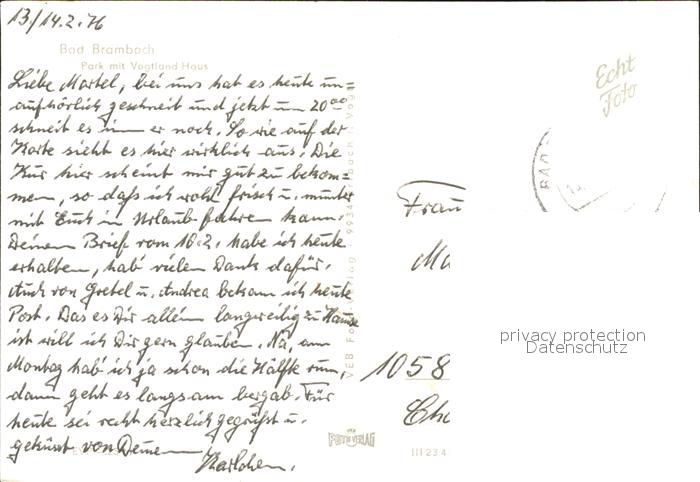 13/14.2.76
Bad Brambach
Park mit Vogtland-Haus
Liebe Martel, bei uns hat es heute un=
aufhörlich geschneit und jetzt um 20⁰⁰
schneit es immer noch. So wie auf der
Karte sieht es hier wirklich aus. Die
Kur hier scheint mir gut zu bekom=
men, so daß ich wohl frisch u. munter
mit Euch in Urlaub fahren kann.
Deinen Brief vom 10.2. habe ich heute
erhalten, hab' vielen Dank dafür.
Auch von Gretel u. Andrea bekam ich heute
Post. Das es Dir allein langweilig zu Hause
ist will ich Dir gern glauben. Na, am
Montag hab' ich ja schon die Hälfte rum,
dann geht es langsam bergab. Für
heute sei recht herzlich gegrüßt u.
geküsst von Deinem
Karlchen.
Echt
Foto
BAD
Frau
Ma
1058
Cha
FOTO VERLAG
III 23 4
privacy protection
Datenschutz